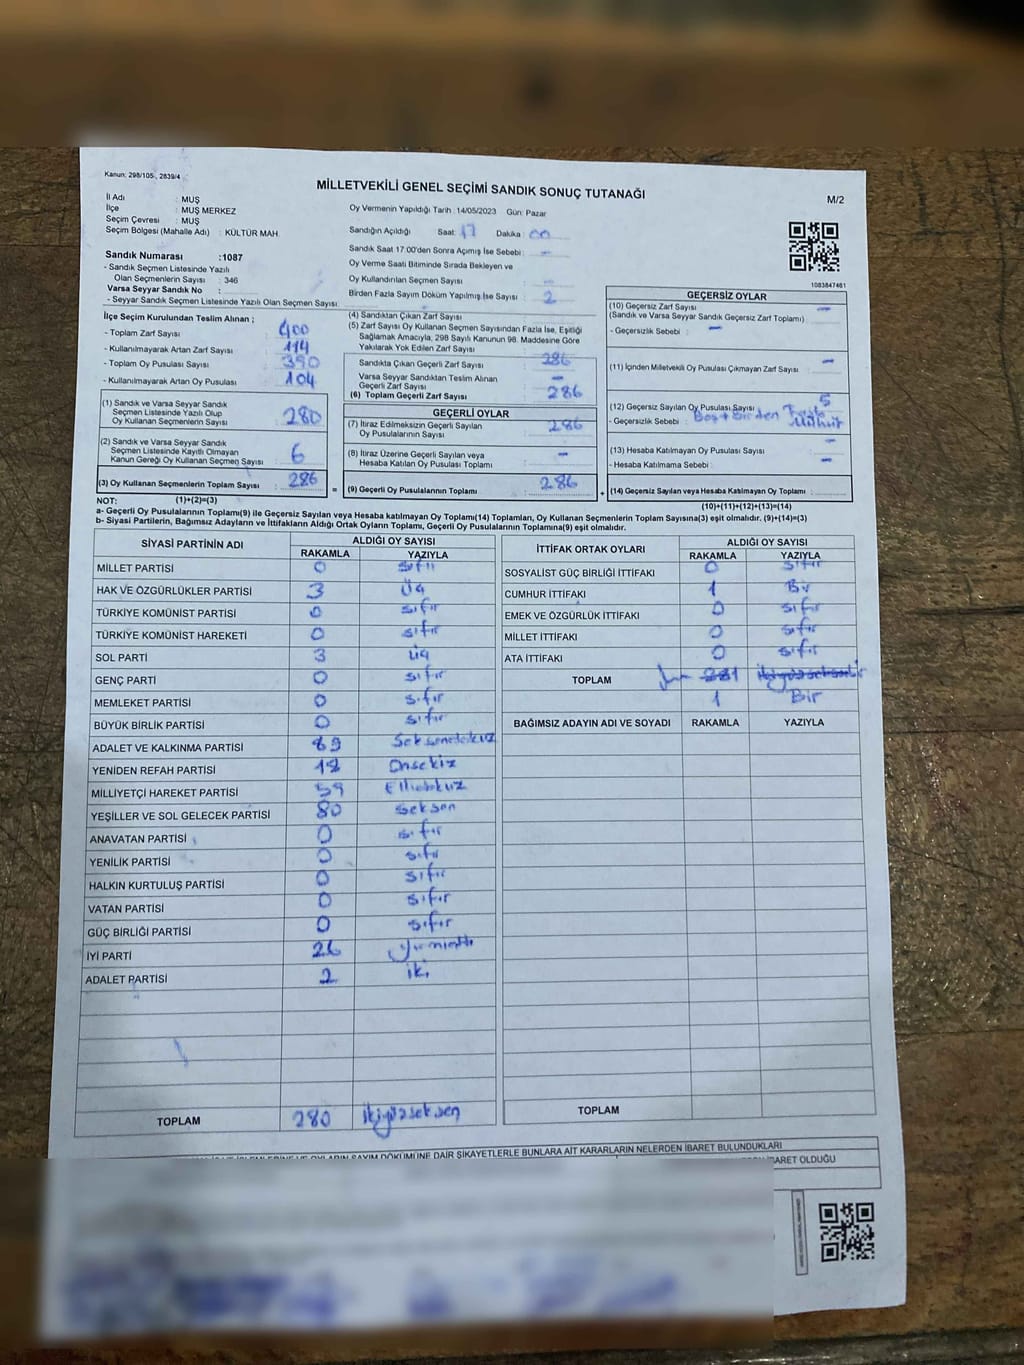 Kanun: 298/105-, 2839/4
MİLLETVEKİLİ GENEL SEÇİMİ SANDIK SONUÇ TUTANAĞI
M/2
İl Adı : MUŞ
İlçe : MUŞ MERKEZ
Seçim Çevresi : MUŞ
Seçim Bölgesi (Mahalle Adı) : KÜLTÜR MAH.
Sandık Numarası :1087
- Sandık Seçmen Listesinde Yazılı
Olan Seçmenlerin Sayısı : 346
Varsa Seyyar Sandık No :
- Seyyar Sandık Seçmen Listesinde Yazılı Olan Seçmen Sayısı:
Oy Vermenin Yapıldığı Tarih : 14/05/2023 Gün: Pazar
Sandığın Açıldığı Saat: 17 Dakika: 00
Sandık Saat 17:00'den Sonra Açımış İse Sebebi : -
Oy Verme Saati Bitiminde Sırada Bekleyen ve
Oy Kullandırılan Seçmen Sayısı : -
Birden Fazla Sayım Döküm Yapılmış İse Sayısı : 2
1083847461
İlçe Seçim Kurulundan Teslim Alınan ;
- Toplam Zarf Sayısı : 400
- Kullanılmayarak Artan Zarf Sayısı : 114
- Toplam Oy Pusulası Sayısı : 390
- Kullanılmayarak Artan Oy Pusulası : 104
(1) Sandık ve Varsa Seyyar Sandık
Seçmen Listesinde Yazılı Olup
Oy Kullanan Seçmenlerin Sayısı : 280
(2) Sandık ve Varsa Seyyar Sandık
Seçmen Listesinde Kayıtlı Olmayan
Kanun Gereği Oy Kullanan Seçmen Sayısı : 6
(3) Oy Kullanan Seçmenlerin Toplam Sayısı : 286
(4) Sandıktan Çıkan Zarf Sayısı :
(5) Zarf Sayısı Oy Kullanan Seçmen Sayısından Fazla İse, Eşitliği
Sağlamak Amacıyla, 298 Sayılı Kanunun 98. Maddesine Göre
Yakılarak Yok Edilen Zarf Sayısı :
Sandıkta Çıkan Geçerli Zarf Sayısı : 286
Varsa Seyyar Sandıktan Teslim Alınan
Geçerli Zarf Sayısı : -
(6) Toplam Geçerli Zarf Sayısı : 286
GEÇERLİ OYLAR
(7) İtiraz Edilmeksizin Geçerli Sayılan
Oy Pusulalarının Sayısı : 286
(8) İtiraz Üzerine Geçerli Sayılan veya
Hesaba Katılan Oy Pusulası Toplamı : -
= (9) Geçerli Oy Pusulalarının Toplamı : 286
GEÇERSİZ OYLAR
(10) Geçersiz Zarf Sayısı : -
(Sandık ve Varsa Seyyar Sandık Geçersiz Zarf Toplamı)
- Geçersizlik Sebebi : -
(11) İçinden Milletvekili Oy Pusulası Çıkmayan Zarf Sayısı : -
(12) Geçersiz Sayılan Oy Pusulası Sayısı : 5
- Geçersizlik Sebebi : Boş + Birden Fazla Mühür
(13) Hesaba Katılmayan Oy Pusulası Sayısı : -
- Hesaba Katılmama Sebebi : -
+ (14) Geçersiz Sayılan veya Hesaba Katılmayan Oy Toplamı :
NOT: (1)+(2)=(3)
(10)+(11)+(12)+(13)=(14)
a- Geçerli Oy Pusulalarının Toplamı(9) ile Geçersiz Sayılan veya Hesaba Katılmayan Oy Toplamı(14) Toplamları, Oy Kullanan Seçmenlerin Toplam Sayısına(3) eşit olmalıdır. (9)+(14)=(3)
b- Siyasi Partilerin, Bağımsız Adayların ve İttifakların Aldığı Ortak Oyların Toplamı, Geçerli Oy Pusulalarının Toplamına(9) eşit olmalıdır.
SİYASİ PARTİNİN ADI ALDIĞI OY SAYISI
RAKAMLA YAZIYLA
MİLLET PARTİSİ 0 Sıfır
HAK VE ÖZGÜRLÜKLER PARTİSİ 3 Üç
TÜRKİYE KOMÜNİST PARTİSİ 0 Sıfır
TÜRKİYE KOMÜNİST HAREKETİ 0 Sıfır
SOL PARTİ 3 Üç
GENÇ PARTİ 0 Sıfır
MEMLEKET PARTİSİ 0 Sıfır
BÜYÜK BİRLİK PARTİSİ 0 Sıfır
ADALET VE KALKINMA PARTİSİ 89 Seksendokuz
YENİDEN REFAH PARTİSİ 18 Onsekiz
MİLLİYETÇİ HAREKET PARTİSİ 59 Ellidokuz
YEŞİLLER VE SOL GELECEK PARTİSİ 80 Seksen
ANAVATAN PARTİSİ 0 Sıfır
YENİLİK PARTİSİ 0 Sıfır
HALKIN KURTULUŞ PARTİSİ 0 Sıfır
VATAN PARTİSİ 0 Sıfır
GÜÇ BİRLİĞİ PARTİSİ 0 Sıfır
İYİ PARTİ 26 Yirmialtı
ADALET PARTİSİ 2 İki
TOPLAM 280 İkiyüzseksen
İTTİFAK ORTAK OYLARI ALDIĞI OY SAYISI
RAKAMLA YAZIYLA
SOSYALİST GÜÇ BİRLİĞİ İTTİFAKI 0 Sıfır
CUMHUR İTTİFAKI 1 Bir
EMEK VE ÖZGÜRLÜK İTTİFAKI 0 Sıfır
MİLLET İTTİFAKI 0 Sıfır
ATA İTTİFAKI 0 Sıfır
TOPLAM 281 İkiyüzseksenbir
1 Bir
BAĞIMSIZ ADAYIN ADI VE SOYADI RAKAMLA YAZIYLA
TOPLAM
OYLARIN SAYIM DÖKÜMÜNE DAİR ŞİKAYETLERLE BUNLARA AİT KARARLARIN NELERDEN İBARET BULUNDUKLARI
İBARET OLDUĞU